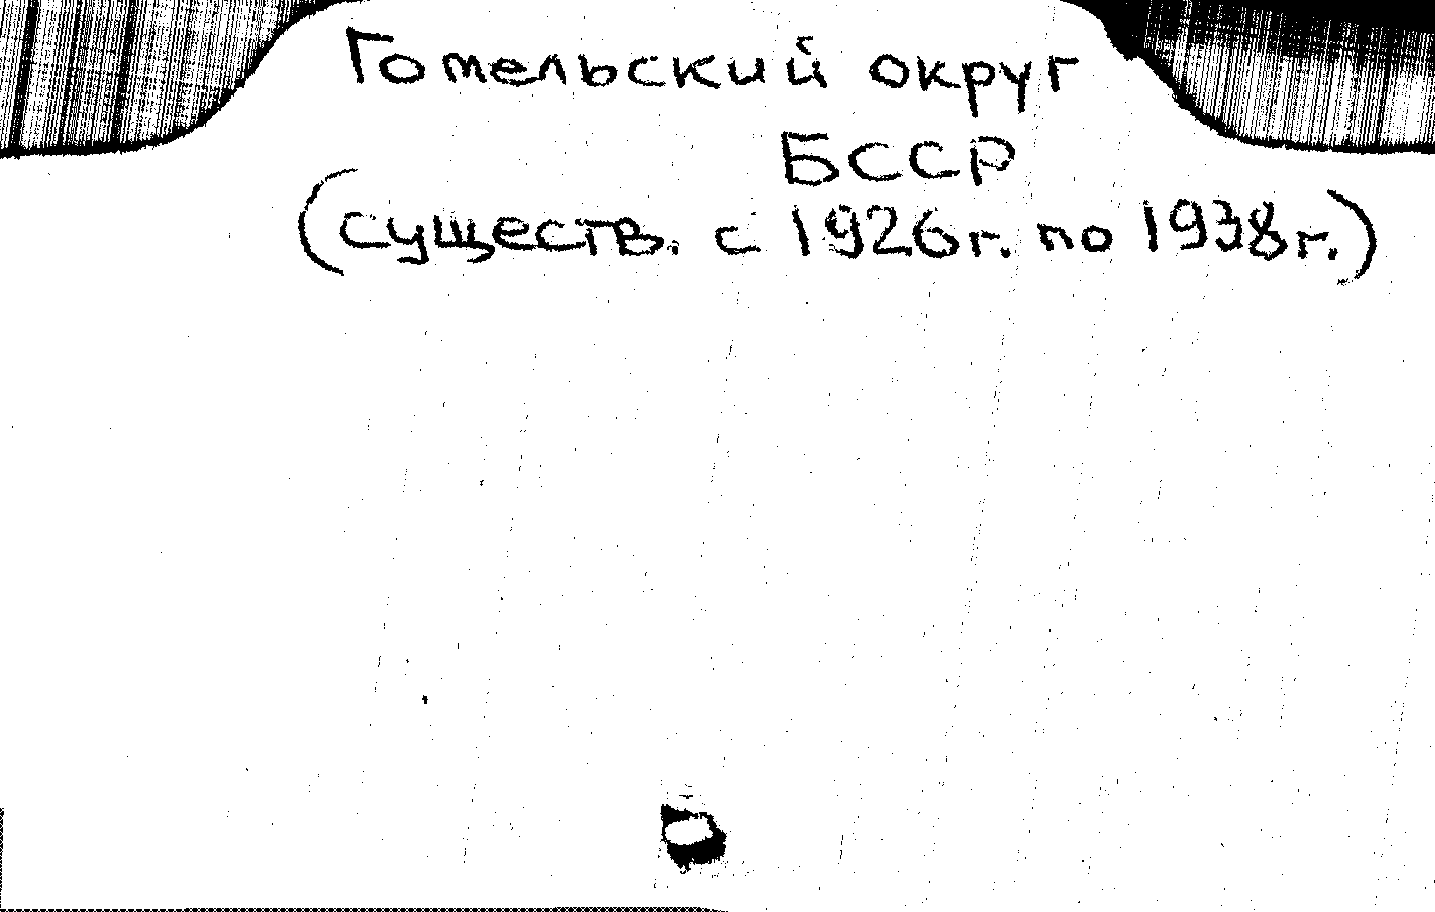 Гомельский округ
БССР
(существ. с 1926г. по 1938г.)